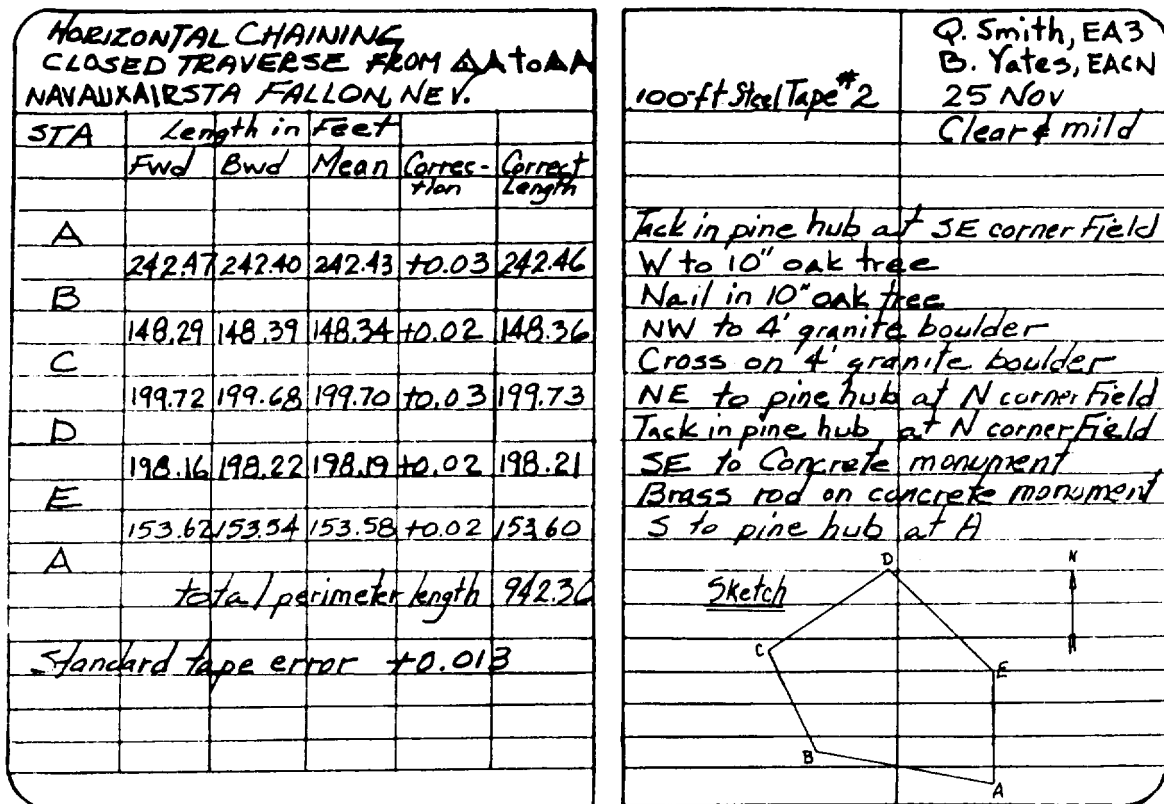 HORIZONTAL CHAINING
CLOSED TRAVERSE FROM △A to △A
NAVAUXAIRSTA FALLON, NEV.
STA Length in Feet
Fwd Bwd Mean Correc-tion Correct Length
A
242.47 242.40 242.43 +0.03 242.46
B
148.29 148.39 148.34 +0.02 148.36
C
199.72 199.68 199.70 +0.03 199.73
D
198.16 198.22 198.19 +0.02 198.21
E
153.62 153.54 153.58 +0.02 153.60
A
total perimeter length 942.36
Standard tape error +0.013
Q. Smith, EA3
B. Yates, EACN
100-ft Steel Tape #2 25 Nov
Clear & mild
Tack in pine hub at SE corner Field
W to 10" oak tree
Nail in 10" oak tree
NW to 4' granite boulder
Cross on 4' granite boulder
NE to pine hub at N corner Field
Tack in pine hub at N corner Field
SE to Concrete monument
Brass rod on concrete monument
S to pine hub at A
Sketch
D
N
C
E
B
A